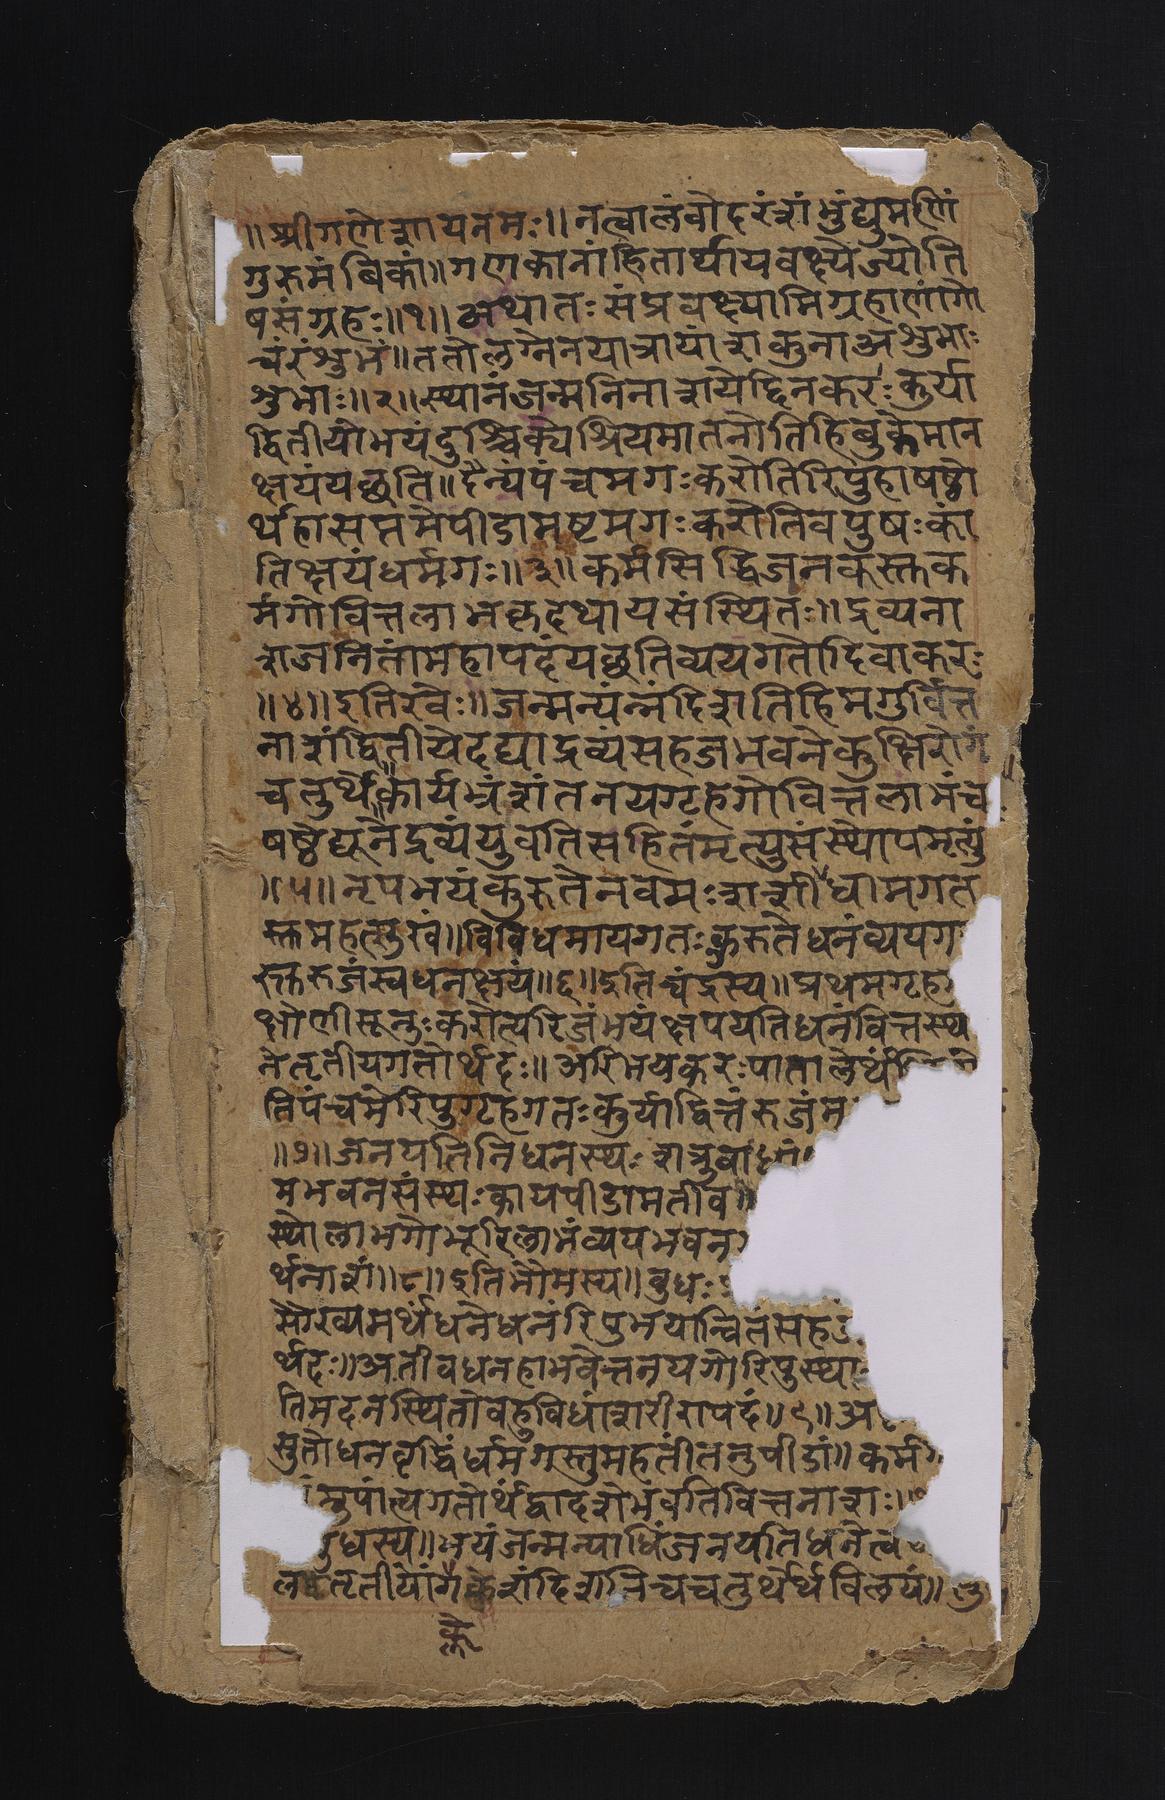 ॥श्रीगणेशायनमः॥नत्वालंबोदरंशंभुंद्युमणिं
गुरुमंबिकां॥गणकानांहितार्थायवक्ष्येज्योति
षसंग्रहः॥१॥अथातःसंप्रवक्ष्यामिग्रहाणांगो
चरंशुभं॥ततोलग्नेनयात्रायांशकुनाअशुभाः
शुभाः॥२॥स्थानंजन्मनिनाशयेद्दिनकरःकुर्या
द्वितीयोभयंदुश्चिक्येश्रियमातनोतिहिबुकेमान
क्षयंयछति॥दैन्यंपंचमगःकरोतिरिपुहाषष्ठो
र्थहासप्तमेपीडामष्टमगःकरोतिवपुषःकां
तिक्षयंधर्मगः॥३॥कर्मसिद्धिजनकस्तुक
र्मगोवित्तलाभकृदथायसंस्थितः॥द्रव्यना
शजनितांमहापदंयछतिव्ययगतोदिवाकरः
॥४॥इतिरवेः॥जन्मन्यंन्नंदिशतिहिमगुर्वित्त
नाशंद्वितीयेदद्याद्रव्यंसहजभवनेकुक्षिरोगं
चतुर्थे॥कार्यभ्रंशंतनयगृहगोवित्तलाभंच
षष्ठेद्यूनेद्रव्यंयुवतिसहितंमृत्युसंस्थोपमृत्युं
॥५॥नृपभयंकुरुतेनवमःशशीधामगत
स्तुमहत्सुखं॥विविधमायगतःकुरुतेधनंव्ययग
स्तुरुजंस्वधनक्षयं॥६॥इतिचंद्रस्य॥प्रथमगृहग
क्षोणीसूनुःकरोत्यरिजंभयंक्षपयतिधनंवित्तस्थ
नेतृतीयगतोर्थदः॥अरिभयकरःपातालेर्थं
तिपंचमेरिपुगृहगतःकुर्याद्वित्तंरुजंम
॥७॥जनयतिनिधनस्थःशत्रुबाधां
मभवनसंस्थःकायपीडामतीव॥
स्थोलाभगोभूरिलाभंव्ययभवन
र्थनाशं॥८॥इतिभौमस्य॥बुधः
सौख्यमर्थंधनेधनंरिपुभयान्वितंसहज
र्थदः॥अतीवधनहाभवेत्तनयगोरिपुस्था
तिमदनस्थितोबहुविधांशरीरापदं॥९॥अ
सुतोधनवृद्धिंर्धर्मगस्तुमहतींतनुपीडां॥कर्मग
नुपांत्यगतोर्थंद्वादशेभवतिवित्तनाशः॥
बुधस्य॥भयंजन्मन्याधिंजनयतिधनेत्व
तृतीयेंगक्लेशंदिशतिचचतुर्थेर्थविलयं॥शु
क्ले